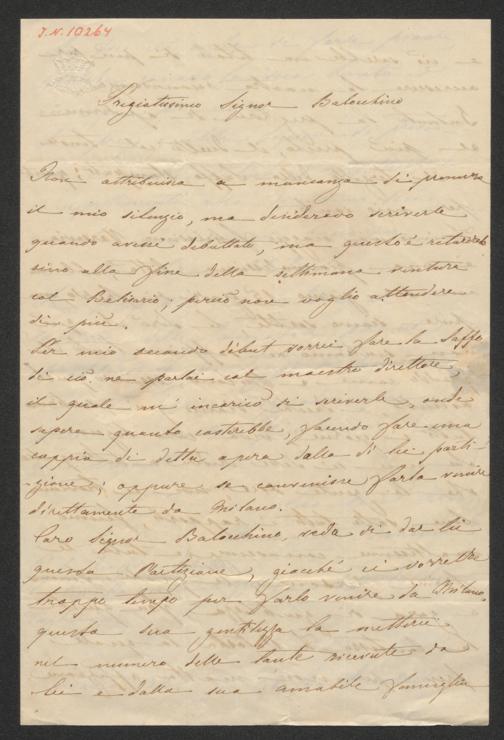 J. N. 10264
Pregiatissimo Signor Balochino
Non attribuisca a mancanza di premura
il mio silenzio, ma desideravo scriverle
quando avessi debuttato, ma questo è retardato
sino alla fine della settimana ventura
col Belisario; perciò non voglio attendere
di più.
Per mio secondo debut vorrei fare la Saffo
di ciò ne parlai col maestro direttore,
il quale m'incaricò di scriverle, onde
sapere quanto costerebbe, facendo fare una
coppia di detta opera dalla di lei parti-
-zione; oppure se convenisse farla venire
direttamente da Milano.
Caro Signor Balochino, veda di dar lei
questa Partizione, giacché ci vorrebbe
troppo tempo per farlo venire da Milano,
questa sua gentilezza la metterei
nel numero delle tante ricevute da
lei e dalla sua amabile famiglia